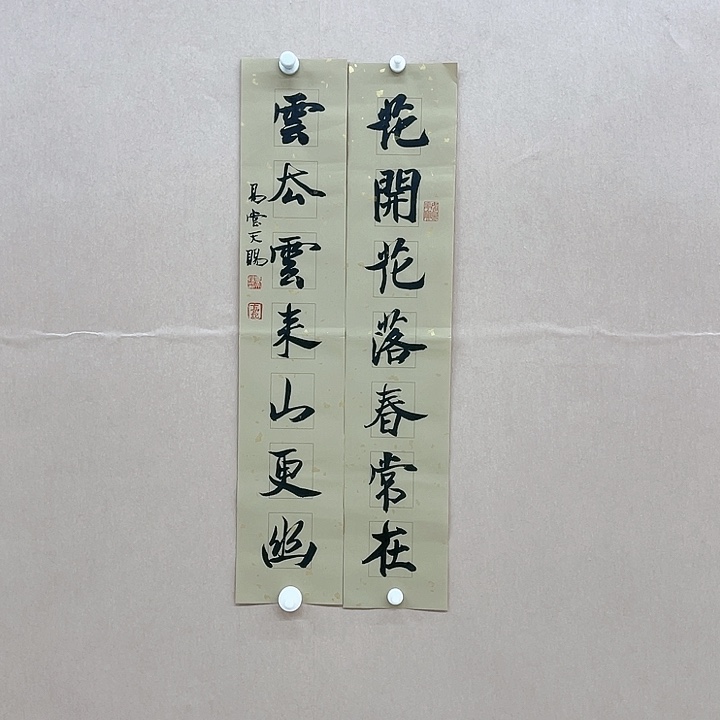 花開花落春常在
雲去雲来山更幽
易雲天賜